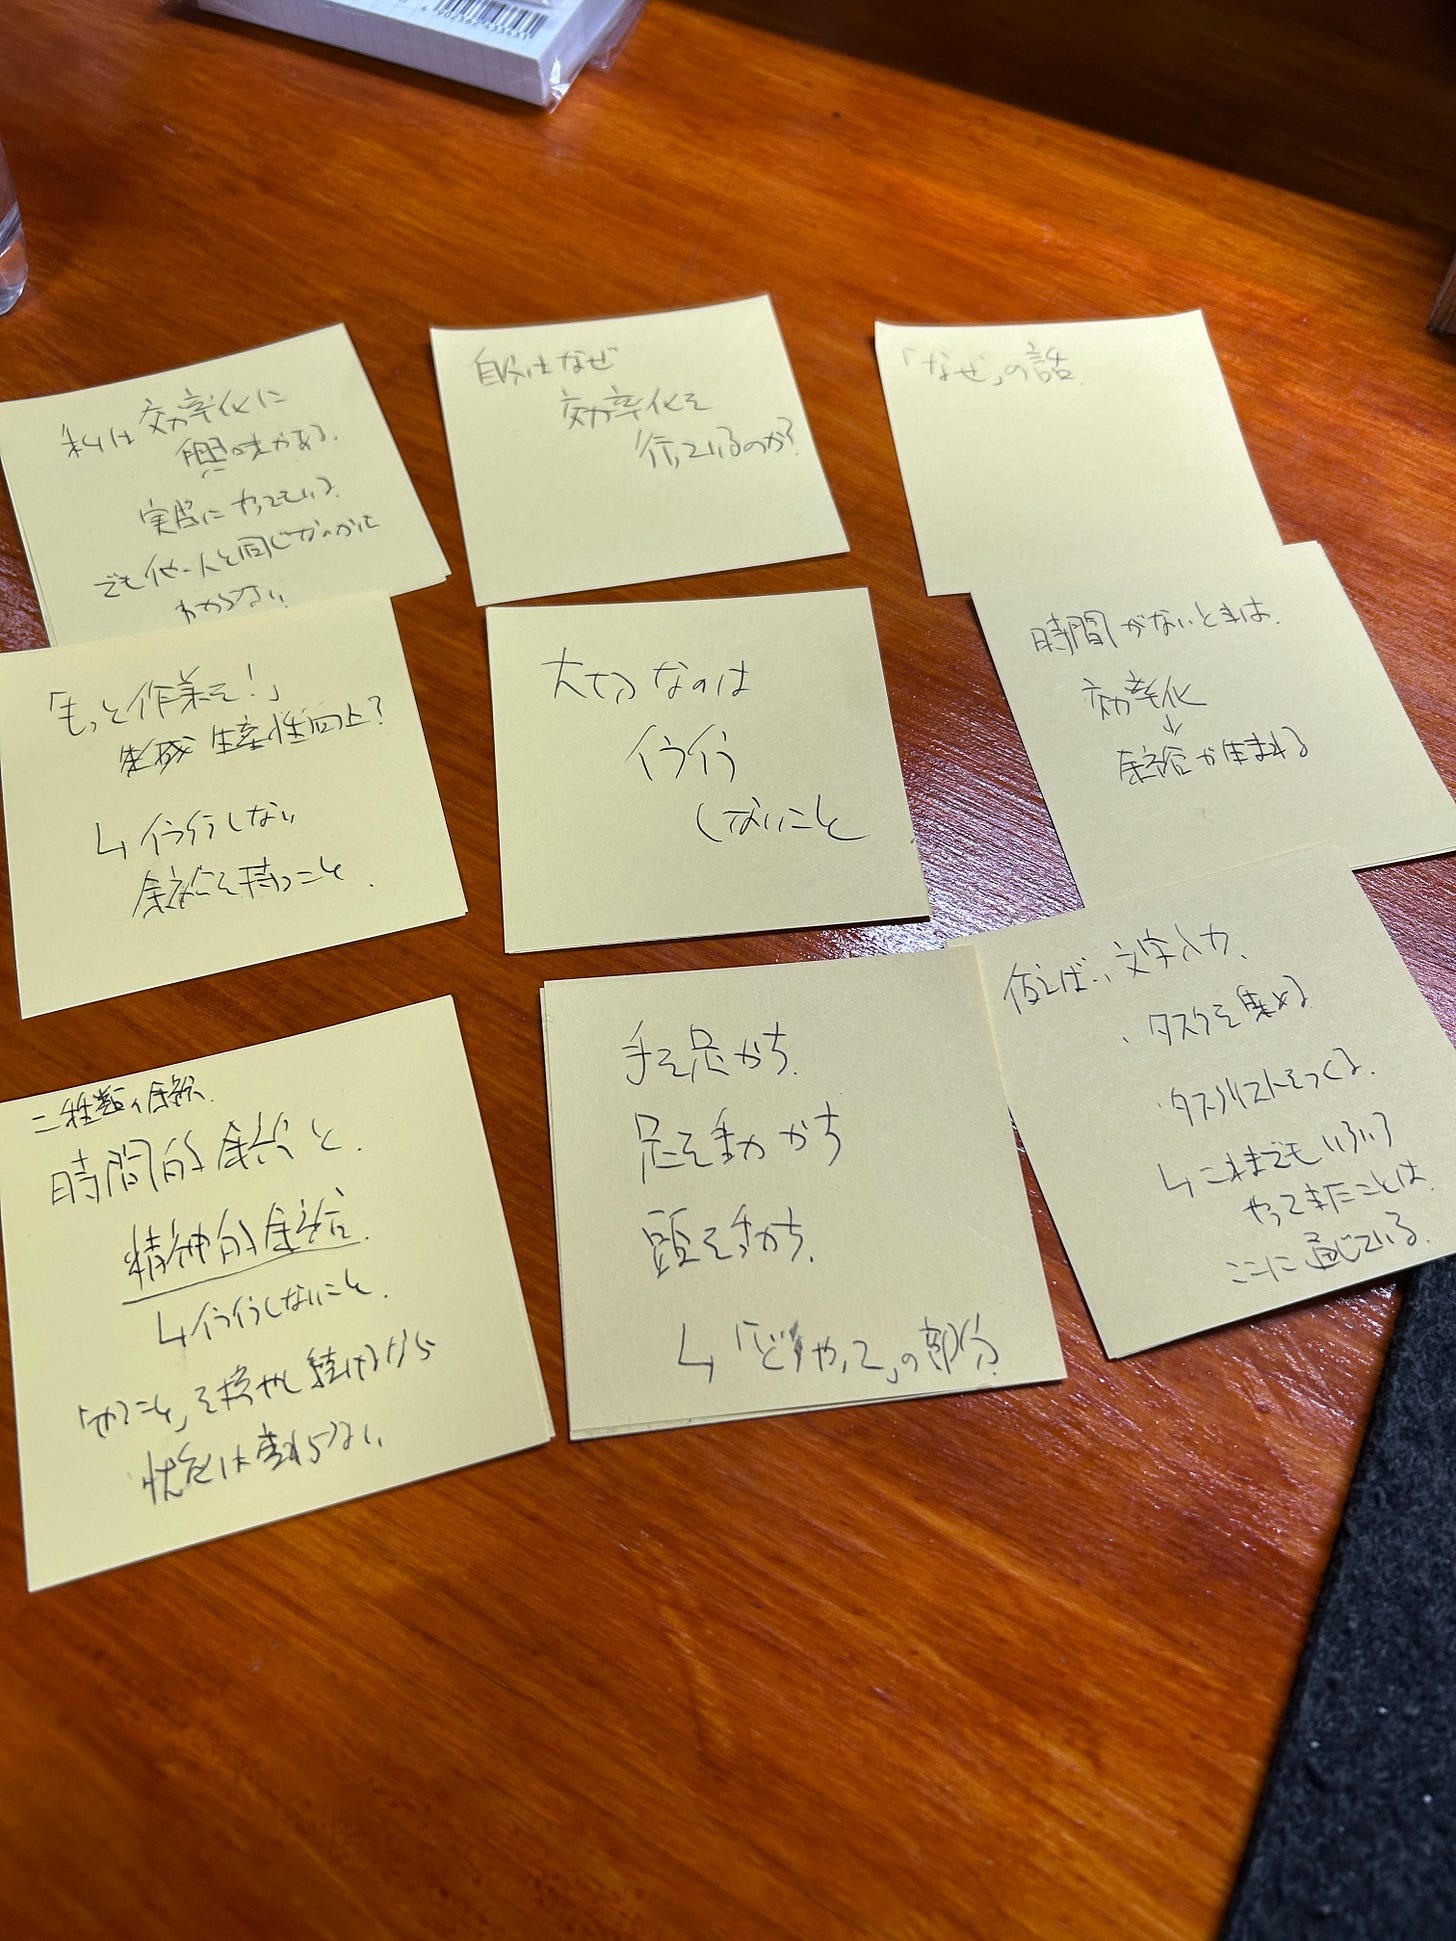 私は効率化に
興味がある.
実際にやってもいる.
でも他人と同じかのかは
わからない.
自分はなぜ
効率化を
行っているのか?
「なぜ」の話.
「もっと作業を!」
生産性向上?
↳ イライラしない
余裕を持つこと.
大切なのは
イライラ
しないこと
時間がないときは.
効率化
↓
余裕が生まれる
二種類の余裕.
時間的余裕と.
精神的余裕.
↳ イライラしないこと.
「やること」を増やし続けるなら
状態は変わらない.
手を足がち.
足を動かち
頭を動かち.
↳ 「どうやって」の部分
例えば、文字入力.
・タスクを集める
・タスクリストをつくる.
↳ これまでもいろいろ
やってきたことは.
ここに通じている.